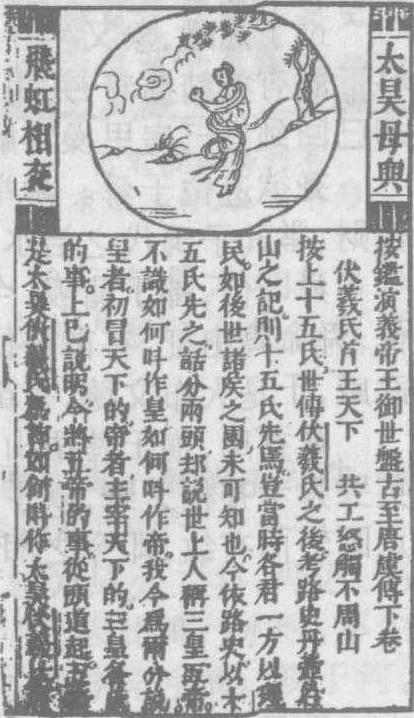 太昊母與
飛虹相交
按鑑演義帝王御世盤古至唐虞傳下卷
伏羲氏首王天下　共工怒觸不周山
按上十五氏世傳伏羲氏之後考路史丹壺名
山之記則十五氏先焉豈當時各君一方以理
民如後世諸侯之國未可知也今依路史以十
五氏先之話分兩頭却說世上人稱三皇五帝
不識如何呌作皇如何呌作帝我今爲爾分說
皇者初冒天下的帝者主宰天下的三皇各
的事上已說明今將五帝的事從頭道起五
是太昊伏羲氏爲首如何呌作太昊伏羲